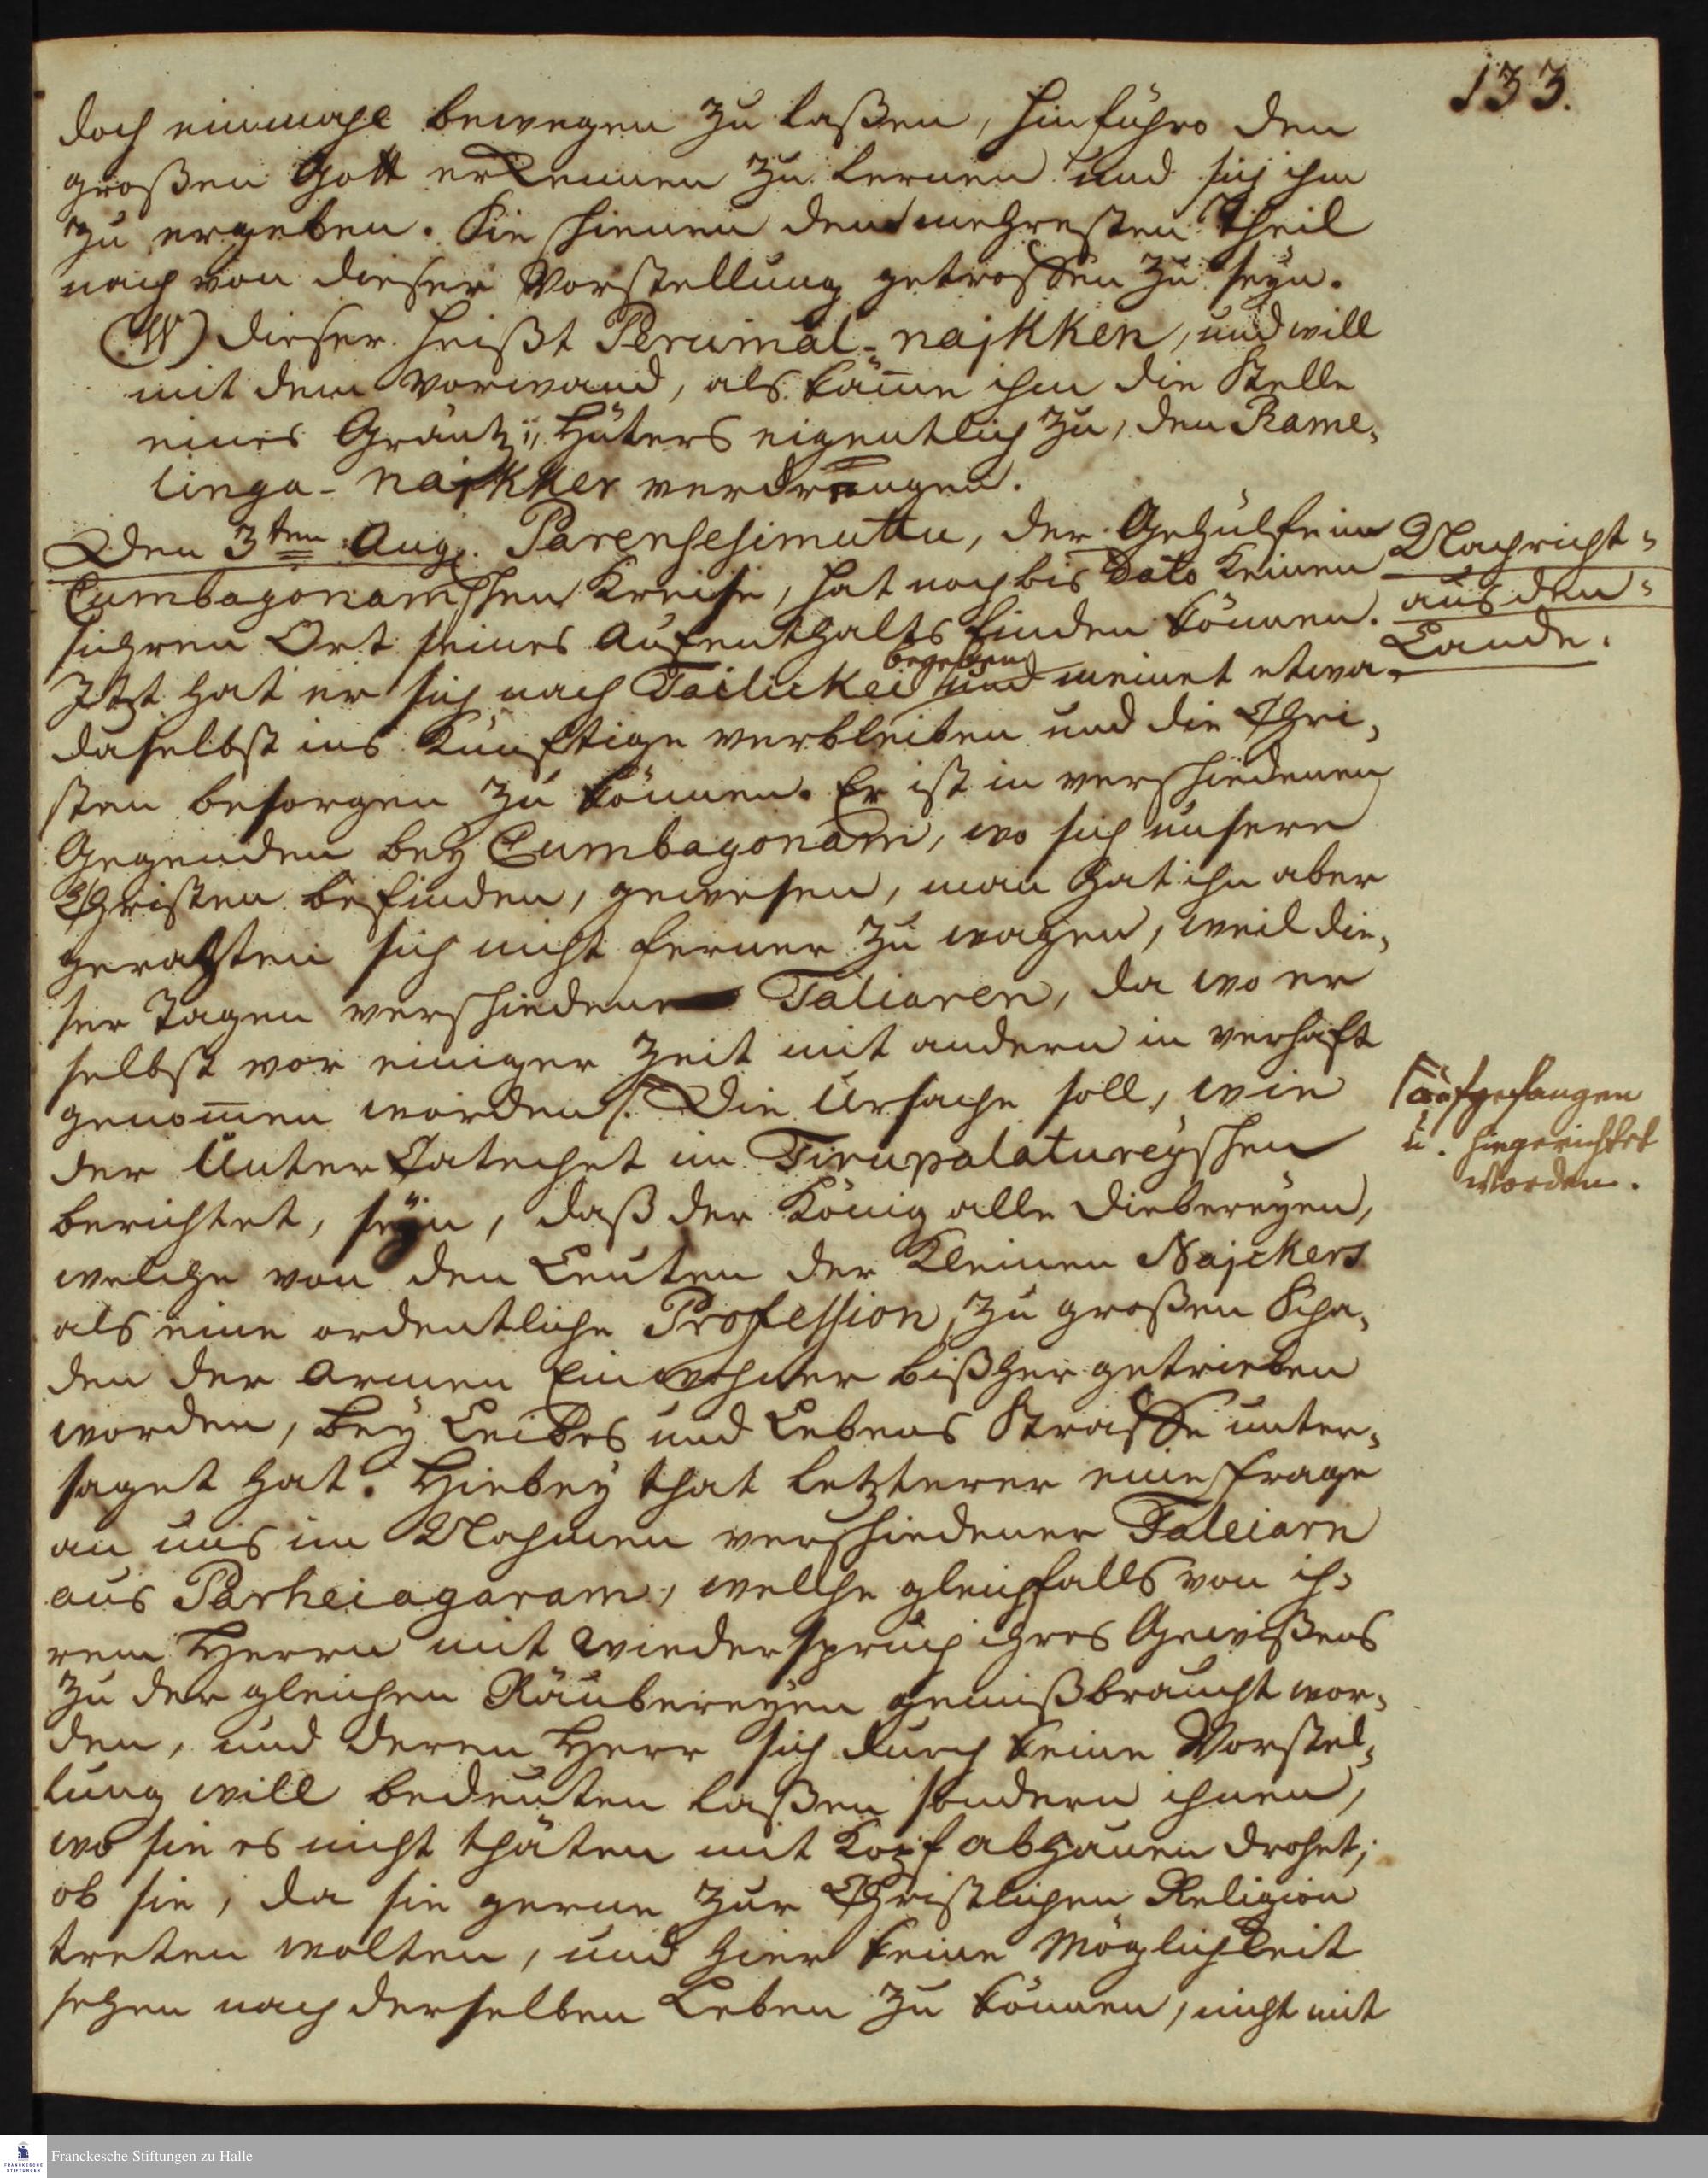 133.
doch einmahl bewegen zu laßen, hinführo den
großen Gott erkennen zu lernen und sich ihm
zu ergeben. Sie schienen dem mehresten Theil
nach von dieser Vorstellung getroffen zu seyn.
(W) dieser heißt Perumál-najkken, und will
mit dem Vorwand, als käme ihm die Stelle
eines Gräntz-Hüters eigentlich zu, den Rame-
linga-najkker verdrengen.
Den 3ten Aug. Parensesimuttu, der Gehülfe im
Cumbagonamschen Kreise, hat noch bis dato keinen
sichren Ort seines Aufenthalts finden können.
Jtzt hat er sich nach Tailickei begeben und meinet etwa
daselbst ins künftige verbleiben und die Chri-
sten besorgen zu können. Er ist in verschiedenen
Gegenden bey Cumbagonam, wo sich unsere
Christen befinden, gewesen, man hat ihn aber
gerathen sich nicht ferner zu wagen, weil die-
ser Tagen verschiedene Taliaren, da wo er
selbst vor einiger Zeit mit andern in verhaft
genom̅en worden. Die Ursache soll, wie
der Unter Catechet im Tirupalatureyschen
berichtet, seyn, daß der König alle Diebereyen,
welche von den Leuten der kleinen Najckers
als eine ordentliche Profession, zu großen Scha-
den der Armen Einwohner bißher getrieben
worden, bey Leibes und Lebens Straffe unter-
saget hat. Hiebey that letzterer eine Frage
an uns im Nahmen verschiedener Taleiarn
aus Parheiagaram, welche gleichfalls von ih-
rem Herrn mit wiederspruch ihres Gewißens
zu der gleichen Räubereyen gemißbraucht wor-
den, und deren Herr sich durch keine Vorstel-
lung will bedeuten laßen sondern ihnen,
wo sie es nicht thäten mit Kopf abhauen drohet;
ob sie, da sie gerne zur Christlichen Religion
treten wolten, und hier keine Möglichkeit
sehen nach derselben Leben zu können, nicht mit
Nachricht-
aus den-
Lande.
aufgefangen
u. hingerichtet
worden.
Franckesche Stiftungen zu Halle
FRANCKESCHE
STIFTUNGEN